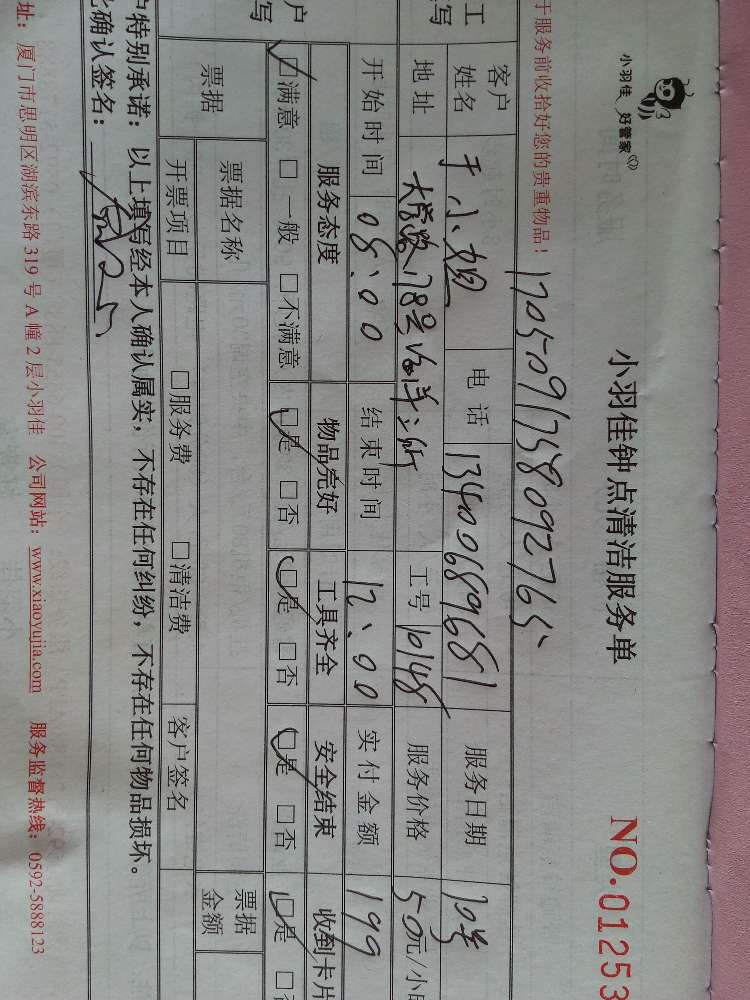 小羽佳 好管家
小羽佳钟点清洁服务单
NO.01253
于服务前收拾好您的贵重物品！
170509175809276
客户姓名 于小姐 电话 13400689681 服务日期 20号
地址 大学路178号 工号 10148 服务价格 50元/小
开始时间 08:00 结束时间 12:00 实付金额 199
服务态度 物品完好 工具齐全 安全结束 收到卡片
☑满意 □一般 □不满意 ☑是 □否 ☑是 □否 ☑是 □否 ☑是 □否
票据 票据名称 □服务费 □清洁费 票据金额
开票项目 客户签名
户特别承诺：以上填写经本人确认属实，不存在任何纠纷，不存在任何物品损坏。
确认签名：
址：厦门市思明区湖滨东路319号A幢2层小羽佳 公司网站：www.xiaoyujia.com 服务监督热线：0592-5888123